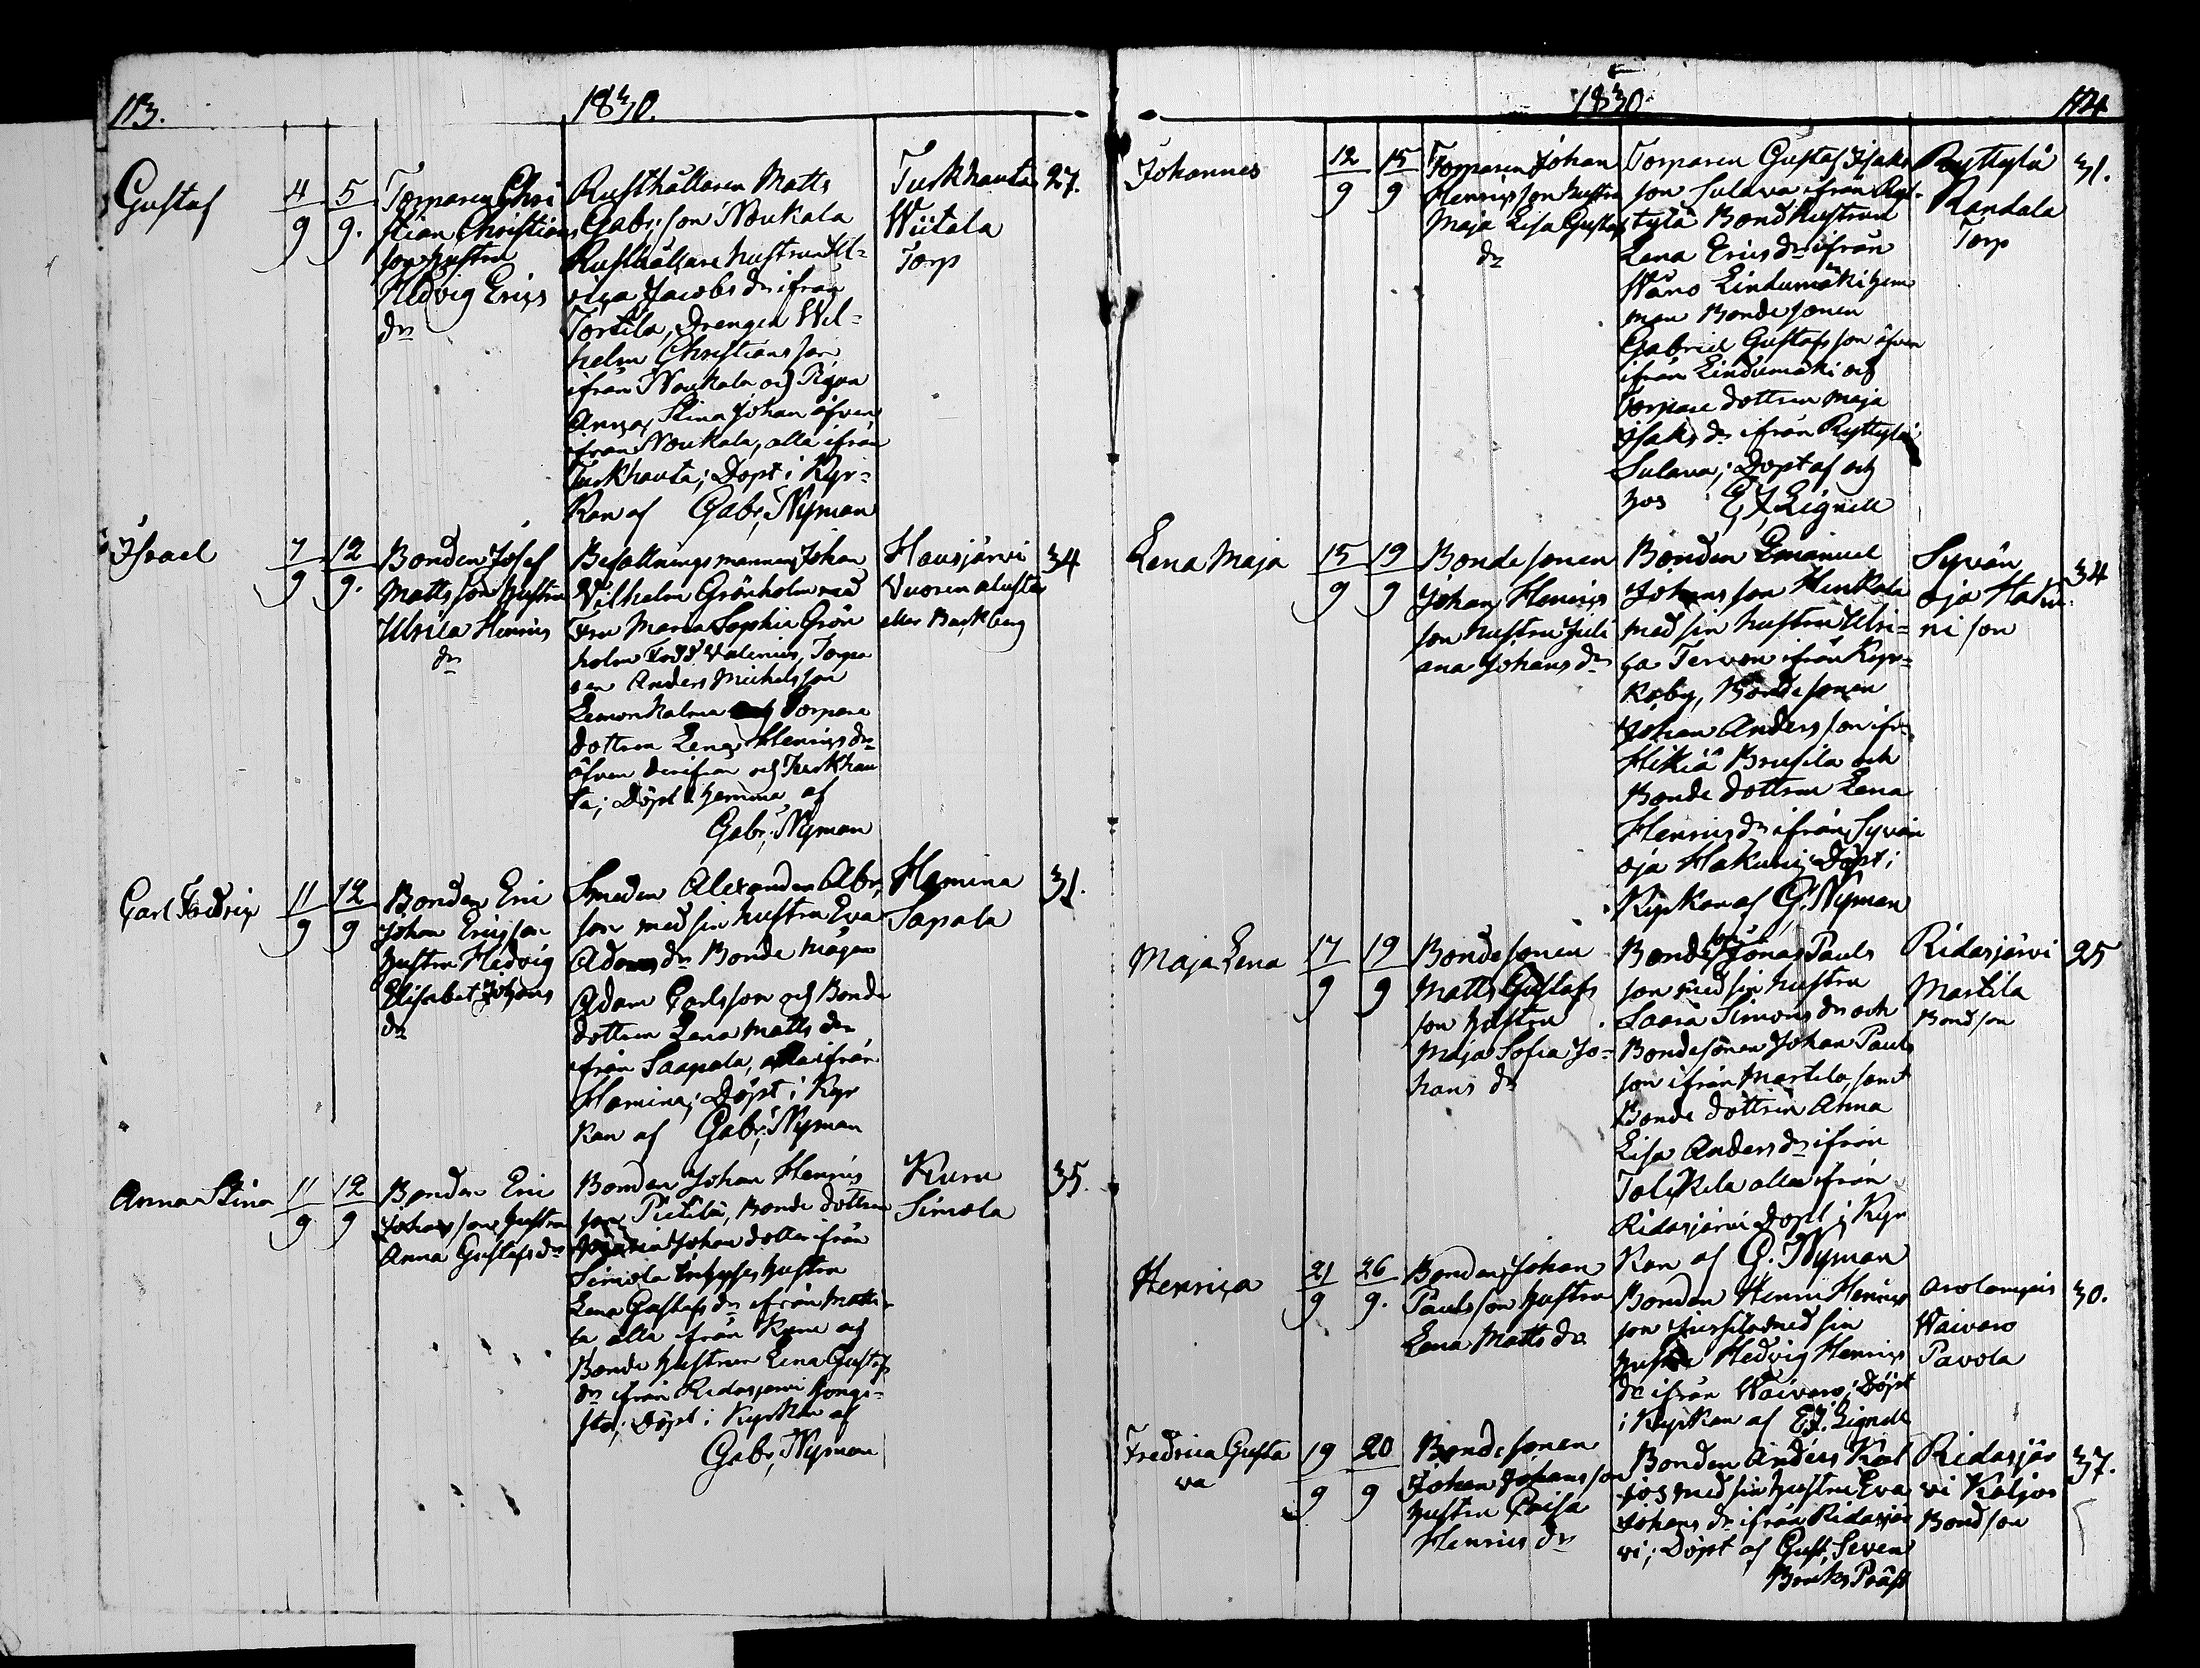 113.
1830.
Gustaf
4/9
5/9.
Torparen Chri
stian Christians
son hustru
Hedvig Erics
dr
Rusthållaren Matts
Gabr: son Noukala
Rusthållare hustrun Ul-
rica Jacobs dr ifrån
Tortila, Drengen Wil-
helm Christians son
ifrån Noukala och Pigan
Anna Stina Johan äfven
ifrån Noukala, alla ifrån
Turkhauta; Döpt i Kyr-
kan af Gabr: Nyman
Turkhauta
Wiitala
Torp
27.
Israel
7/9
12/9.
Bonden Josef
Matts son hustru
Ulrica Henrics
dr
Befallningsmannen Johan
Vilhelm Grönholm med
Fru Maria Sophia Grön
holm född Valenius, Torpa
ren Anders Michels son
Lemonhalma Torpare
dottren Lena Henrics dr
äfven derifrån och Turkhau
ta; Döpt hemma af
Gabr: Nyman
Hausjärvi
Vuorenalusta
eller Backberg
34
Carl Fredric
11/9
12/9
Bonden Eric
Johan Ericsson
hustru Hedvig
Elisabet Johans
dr
Smeden Alexander Abr:
son med sin hustru Eva
Adams dr Bonde mågen
Adam Carlsson och Bonde
dottren Lena Matts dr
ifrån Saapala, alla ifrån
Hamina; Döpt i Kyr
kan af Gabr: Nyman
Hamina
Sapala
31.
Anna Stina
11/9
12/9
Bonden Eric
Johans son hustru
Anna Gustafs dr
Bonden Johan Henrics
son Pietilä, Bonde dottren
Maria Johan dotter ifrån
Simola Inhyses hustru
Lena Gustafs dr ifrån Matti-
la alla ifrån Kuru och
Bonde hustrun Lena Gustafs
dr ifrån Ridasjärvi
Döpt i Kyrkan af
Gabr: Nyman
Kuru
Simola
35.
1830
114
Johannes
12/9
15/9
Torparen Johan
Henrics son hustru
Maja Lisa Gustafs
dr
Torparen Gustaf Isaks
son Sulava ifrån Ryt-
tylä Bond hustrun
Lena Erics dr ifrån
Wåno Lindumäki hem
man Bonde sonen
Gabriel Gustafs son äfven
ifrån Lindumäki och
Torpare dottren Maja
Isaks dr ifrån Ryttylä
Sulava; Döpt af och
hos E J Lignell
Ryttylä
Randala
Torp
31.
Lena Maja
15/9
19/9
Bonde sonen
Johan Henrics
son hustru Juli
ana Johans dr
Bonden Emanuel
Johans son Hinkala
med sin hustru Ulri-
ca Tervon ifrån Kyr-
koby, Bonde sonen
Johan Anders son ifr.
Hikiä Brusila och
Bonde dottren Lena
Henrics dr ifrån Syvän
oja Hakuni; Döpt i
Kyrkan af G. Nyman
Syvän
oja Haku
ni son
34
Maja Lena
17/9
19/9
Bonde sonen
Matts Gustafs
son hustru
Maja Sofia Jo-
hans dr
Bonde Jonas Pauls
son med sin hustru
Saara Simons dr och
Bonde sonen Johan Pauls
son ifrån Martila, samt
Bonde dottren Anna
Lisa Anders dr ifrån
Tolkkila alla ifrån
Ridasjärvi Döpt i Kyr
kan af G. Nyman
Ridasjärvi
Martila
Bond son
25
Henrica
21/9
26/9.
Bonden Johan
Pauls son hustru
Lena Matts dr
Bonden Henric Henrics
son Jussila med sin
hustru Hedvig Henrics
dr ifrån Waivaro; Döpt
i Kyrkan af E J. Lignell
Arolampis
Waivaro
Pavola
30.
Fredrica Gusta
va
19/9
20/9
Bonde sonen
Johan Johans son
hustru Caisa
Henrics dr
Bonden Anders Kal
jos med sin hustru Eva
Johans dr ifrån Ridasjär
vi; Döpt af Gust. Seven
Bruks Präst
Ridasjär
vi Kaljos
Bond son
37.